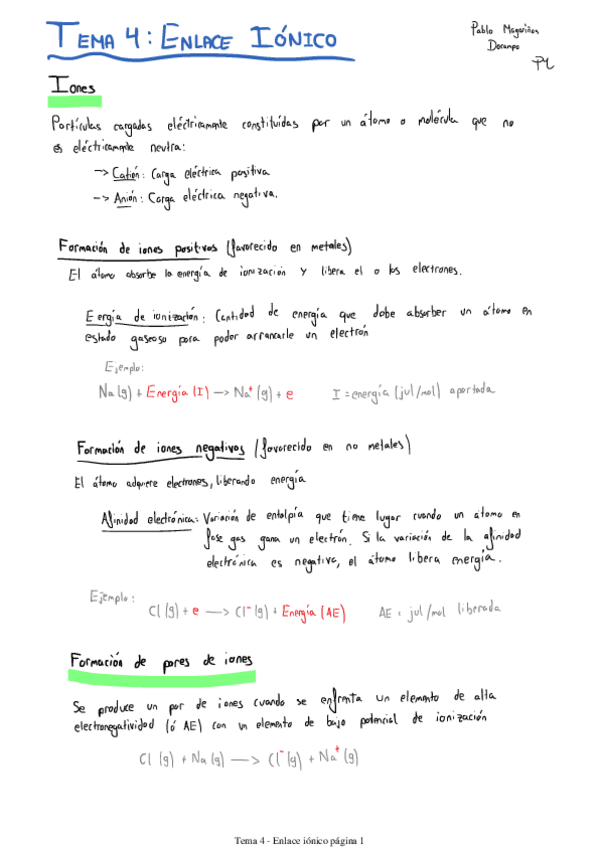 TEMA 4: ENLACE IÓNICO
Pablo Magariños
Docampo
Iones
Partículas cargadas eléctricamente constituídas por un átomo o molécula que no
es eléctricamente neutra:
-> Catión: Carga eléctrica positiva
-> Anión: Carga eléctrica negativa.
Formación de iones positivos (favorecido en metales)
El átomo absorbe la energía de ionización y libera el o los electrones.
Eergía de ionización: Cantidad de energía que debe absorber un átomo en
estado gaseoso para poder arrancarle un electrón
Ejemplo:
Na(g) + Energía (I) -> Na⁺(g) + e I = energía (jul/mol) aportada
Formación de iones negativos (favorecido en no metales)
El átomo adquiere electrones, liberando energía
Afinidad electrónica: Variación de entalpía que tiene lugar cuando un átomo en
fase gas gana un electrón. Si la variación de la afinidad
electrónica es negativa, el átomo libera energía.
Ejemplo:
Cl(g) + e -> Cl⁻(g) + Energía (AE) AE = jul/mol liberada
Formación de pares de iones
Se produce un par de iones cuando se enfrenta un elemento de alta
electronegatividad (ó AE) con un elemento de bajo potencial de ionización
Cl (g) + Na (g) -> Cl⁻(g) + Na⁺(g)
Tema 4 - Enlace iónico página 1